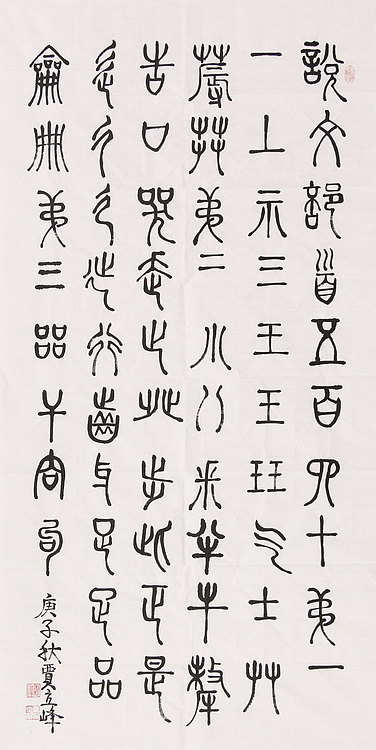 說文部首五百四十弟一
一上示三王玉玨气士艸
蓐茻弟二小八釆半牛犛
告口哭走止癶步此正是
辵彳廴㢟行齒牙足疋品
龠冊弟三㗊干𧮫句
庚子秋賈立峰